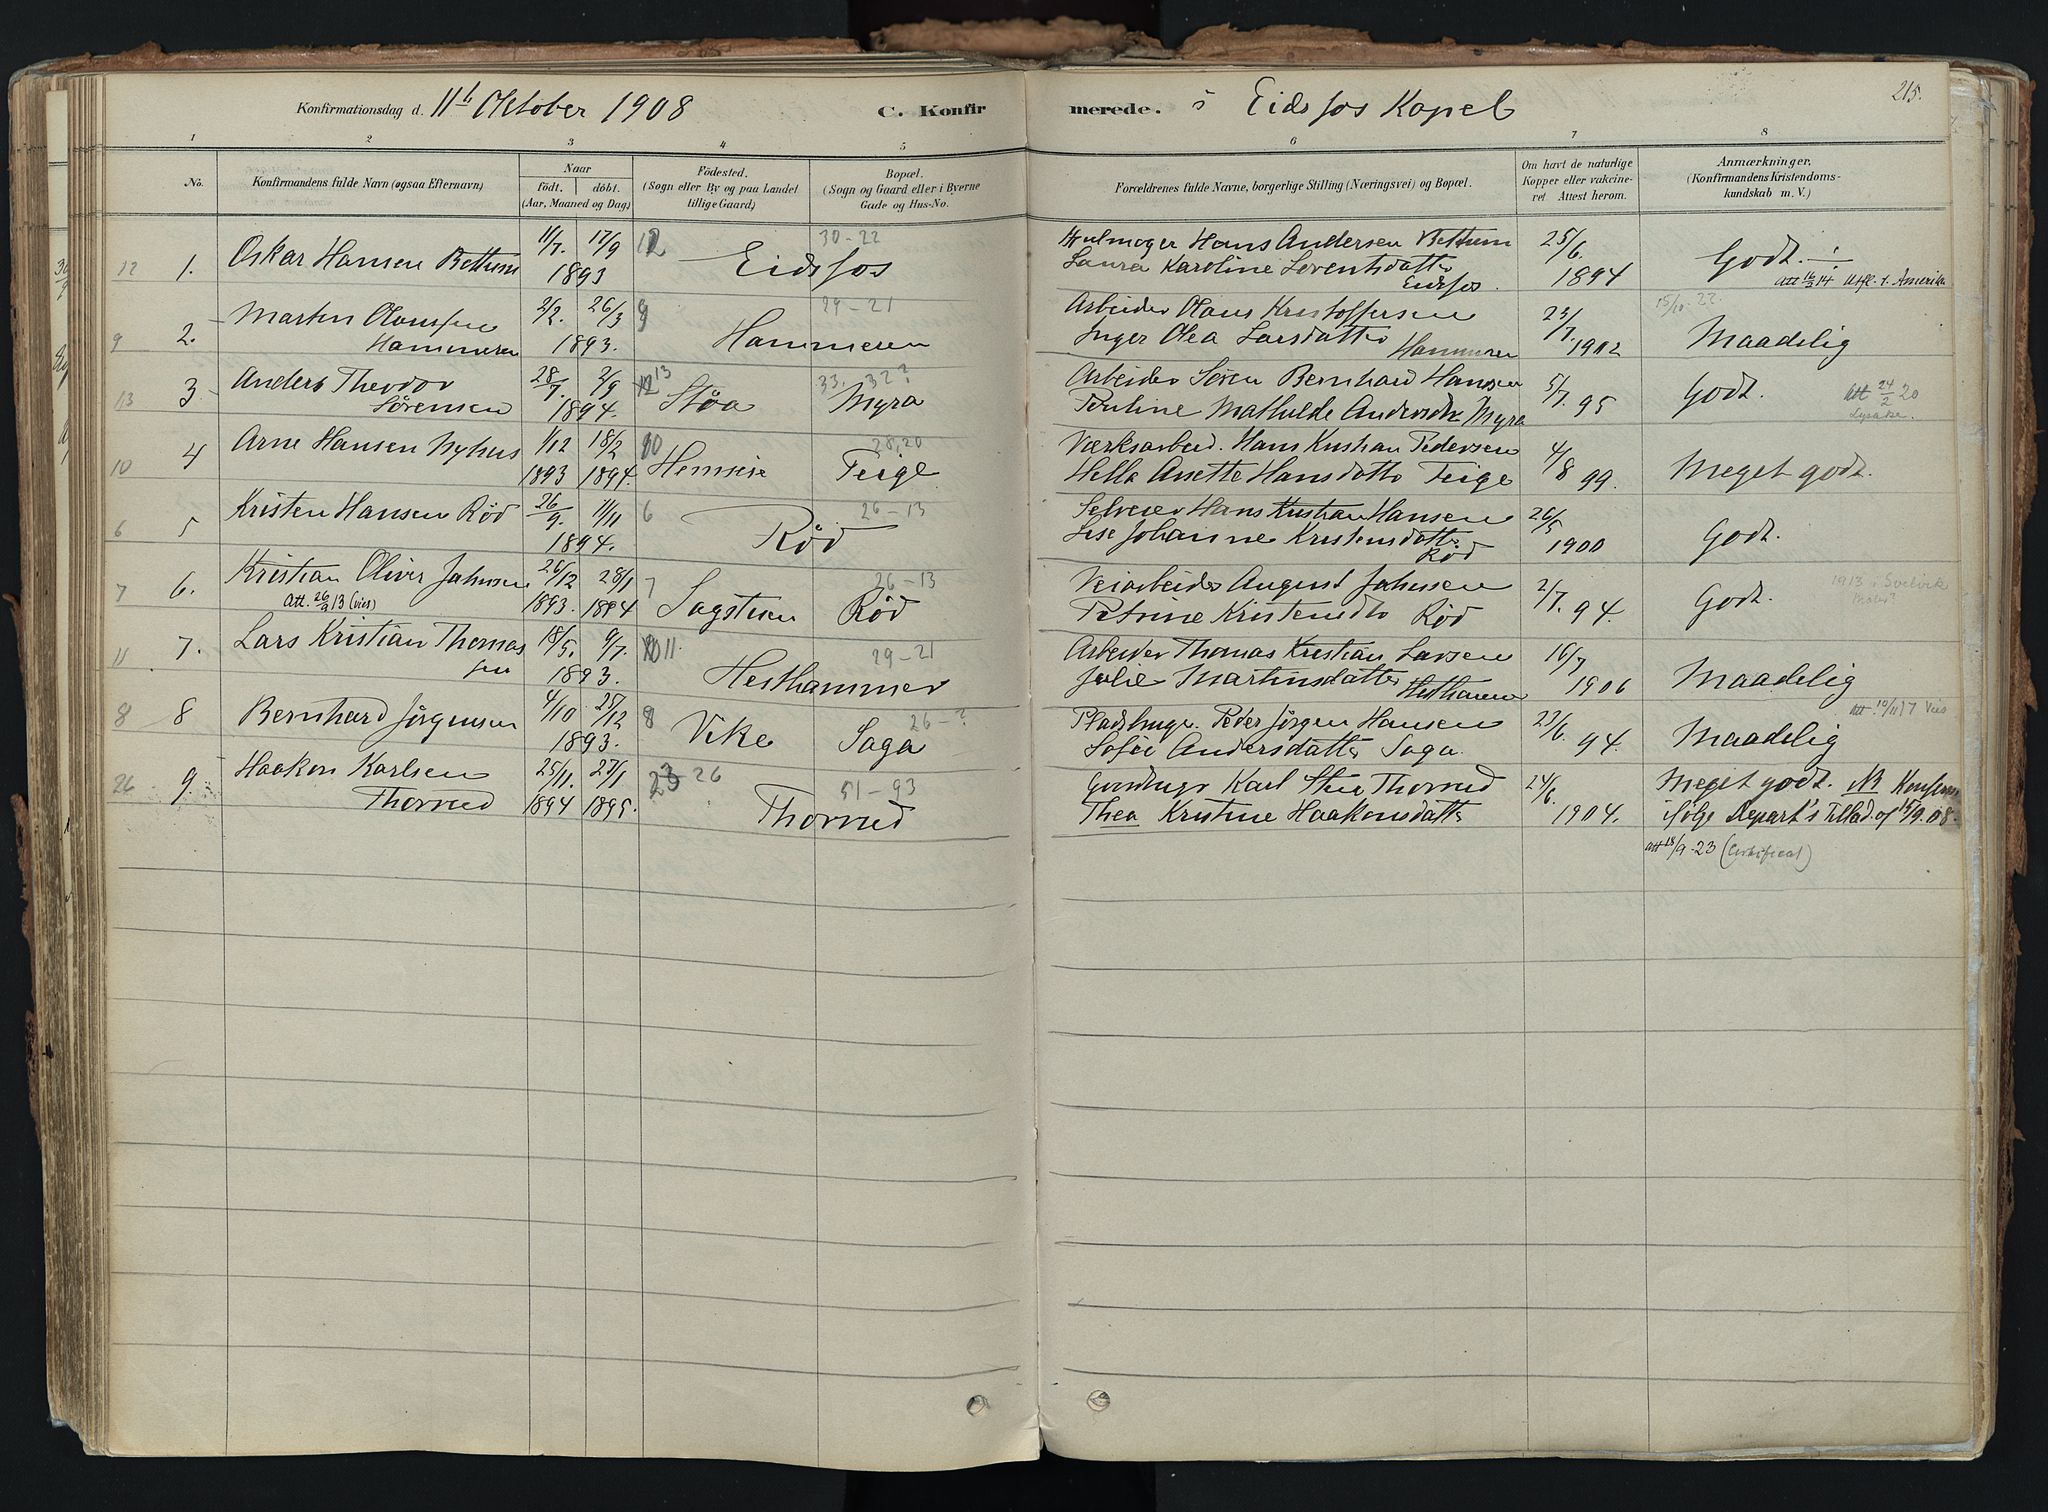 Konfirmationsdag d. 11te Oktober 1908 C. Konfirmerede. i Eidsfos Kapel 215.
1 2 3 4 5 6 7 8
No. Konfirmandens fulde Navn (ogsaa Efternavn) Naar født. døbt. (Aar, Maaned og Dag.) Fødested. (Sogn eller By og paa Landet tillige Gaard.) Bopæl. (Sogn og Gaard eller i Byerne Gade og Hus-No. Forældrenes fulde Navne, borgerlige Stilling (Næringsvei) og Bopæl. Om havt de naturlige Kopper eller vakcineret Attest herom. Anmærkninger. (Konfirmandens Kristendomskundskab m. V.)
12 1. Oskar Hansen Bettum 11/7. 17/9 1893 12 30-22 Eidsfos
Hjulmager Hans Andersen Bettum 25/6. 1894 Godt.
Laura Karoline Lorentsdatter Eidsfos. Att 16/3 14 Utfl. t. Amerika
9 2. Marten Olaussen Hammeren 2/2. 26/3 1893. 9 29-21 Hammeren
Arbeider Olaus Kristoffersen 23/7. 1902 15/10-22. Maadelig
Inger Olea Larsdatter Hammeren
13 3. Anders Theodor Sørensen 28/7 2/9 1894. 13 Støa 33. 32? Myra
Arbeider Søren Bernhard Hansen 5/7. 95 Godt. Att 24/2 20 Lysaker.
Pauline Mathilde Andersdtr Myra
10 4 Arne Hansen Nyhus 1/12 18/2 1893 1894. 10 Hemseie 28,20 Teige
Værksarbeid. Hans Kristian Pedersen 4/8 99. Meget godt.
Hella Anette Hansdatter Teige
6 5 Kristen Hansen Rød 26/9. 11/11 1894. 6 26-13 Rød
Selveier Hans Kristian Hansen 26/5 1900 Godt.
Lise Johanne Kristensdatter Rød
7 6. Kristian Oliver Jahnsen 26/12 28/1 1893. 1894 7 Sagstuen 26-13 Rød
Att. 26/9 13 (vies)
Veiarbeider August Jahnsen 2/7. 94. Godt. 1913 i Svelvik
Petrine Kristensdtr Rød
11 7. Lars Kristian Thomassen 18/5. 9/7. 1893. 11. 29-21 Hesthammer
Arbeider Thomas Kristian Larsen 16/7 1906 Maadelig
Julie Martinsdatter Hesthamer
8 8 Bernhard Jørgensen 4/10 25/12 1893. 8 Vike 26-? Saga
Pladsbruger Peder Jørgen Hansen 23/6. 94. Maadelig Att. 10/11 17 Vies
Sofie Andersdatter Saga.
26 9. Haakon Karlsen Thorrud 25/11. 27/1 1894 1895. 23 26 51-93 Thorrud
Gaardbruger Karl Thorrud 24/6. 1904. Meget godt. NB Konfirm
Thea Kristine Haakonsdatter ifølge Depart's Tillad. af 15/9. 08.
Att 18/9-23 (Certificat)